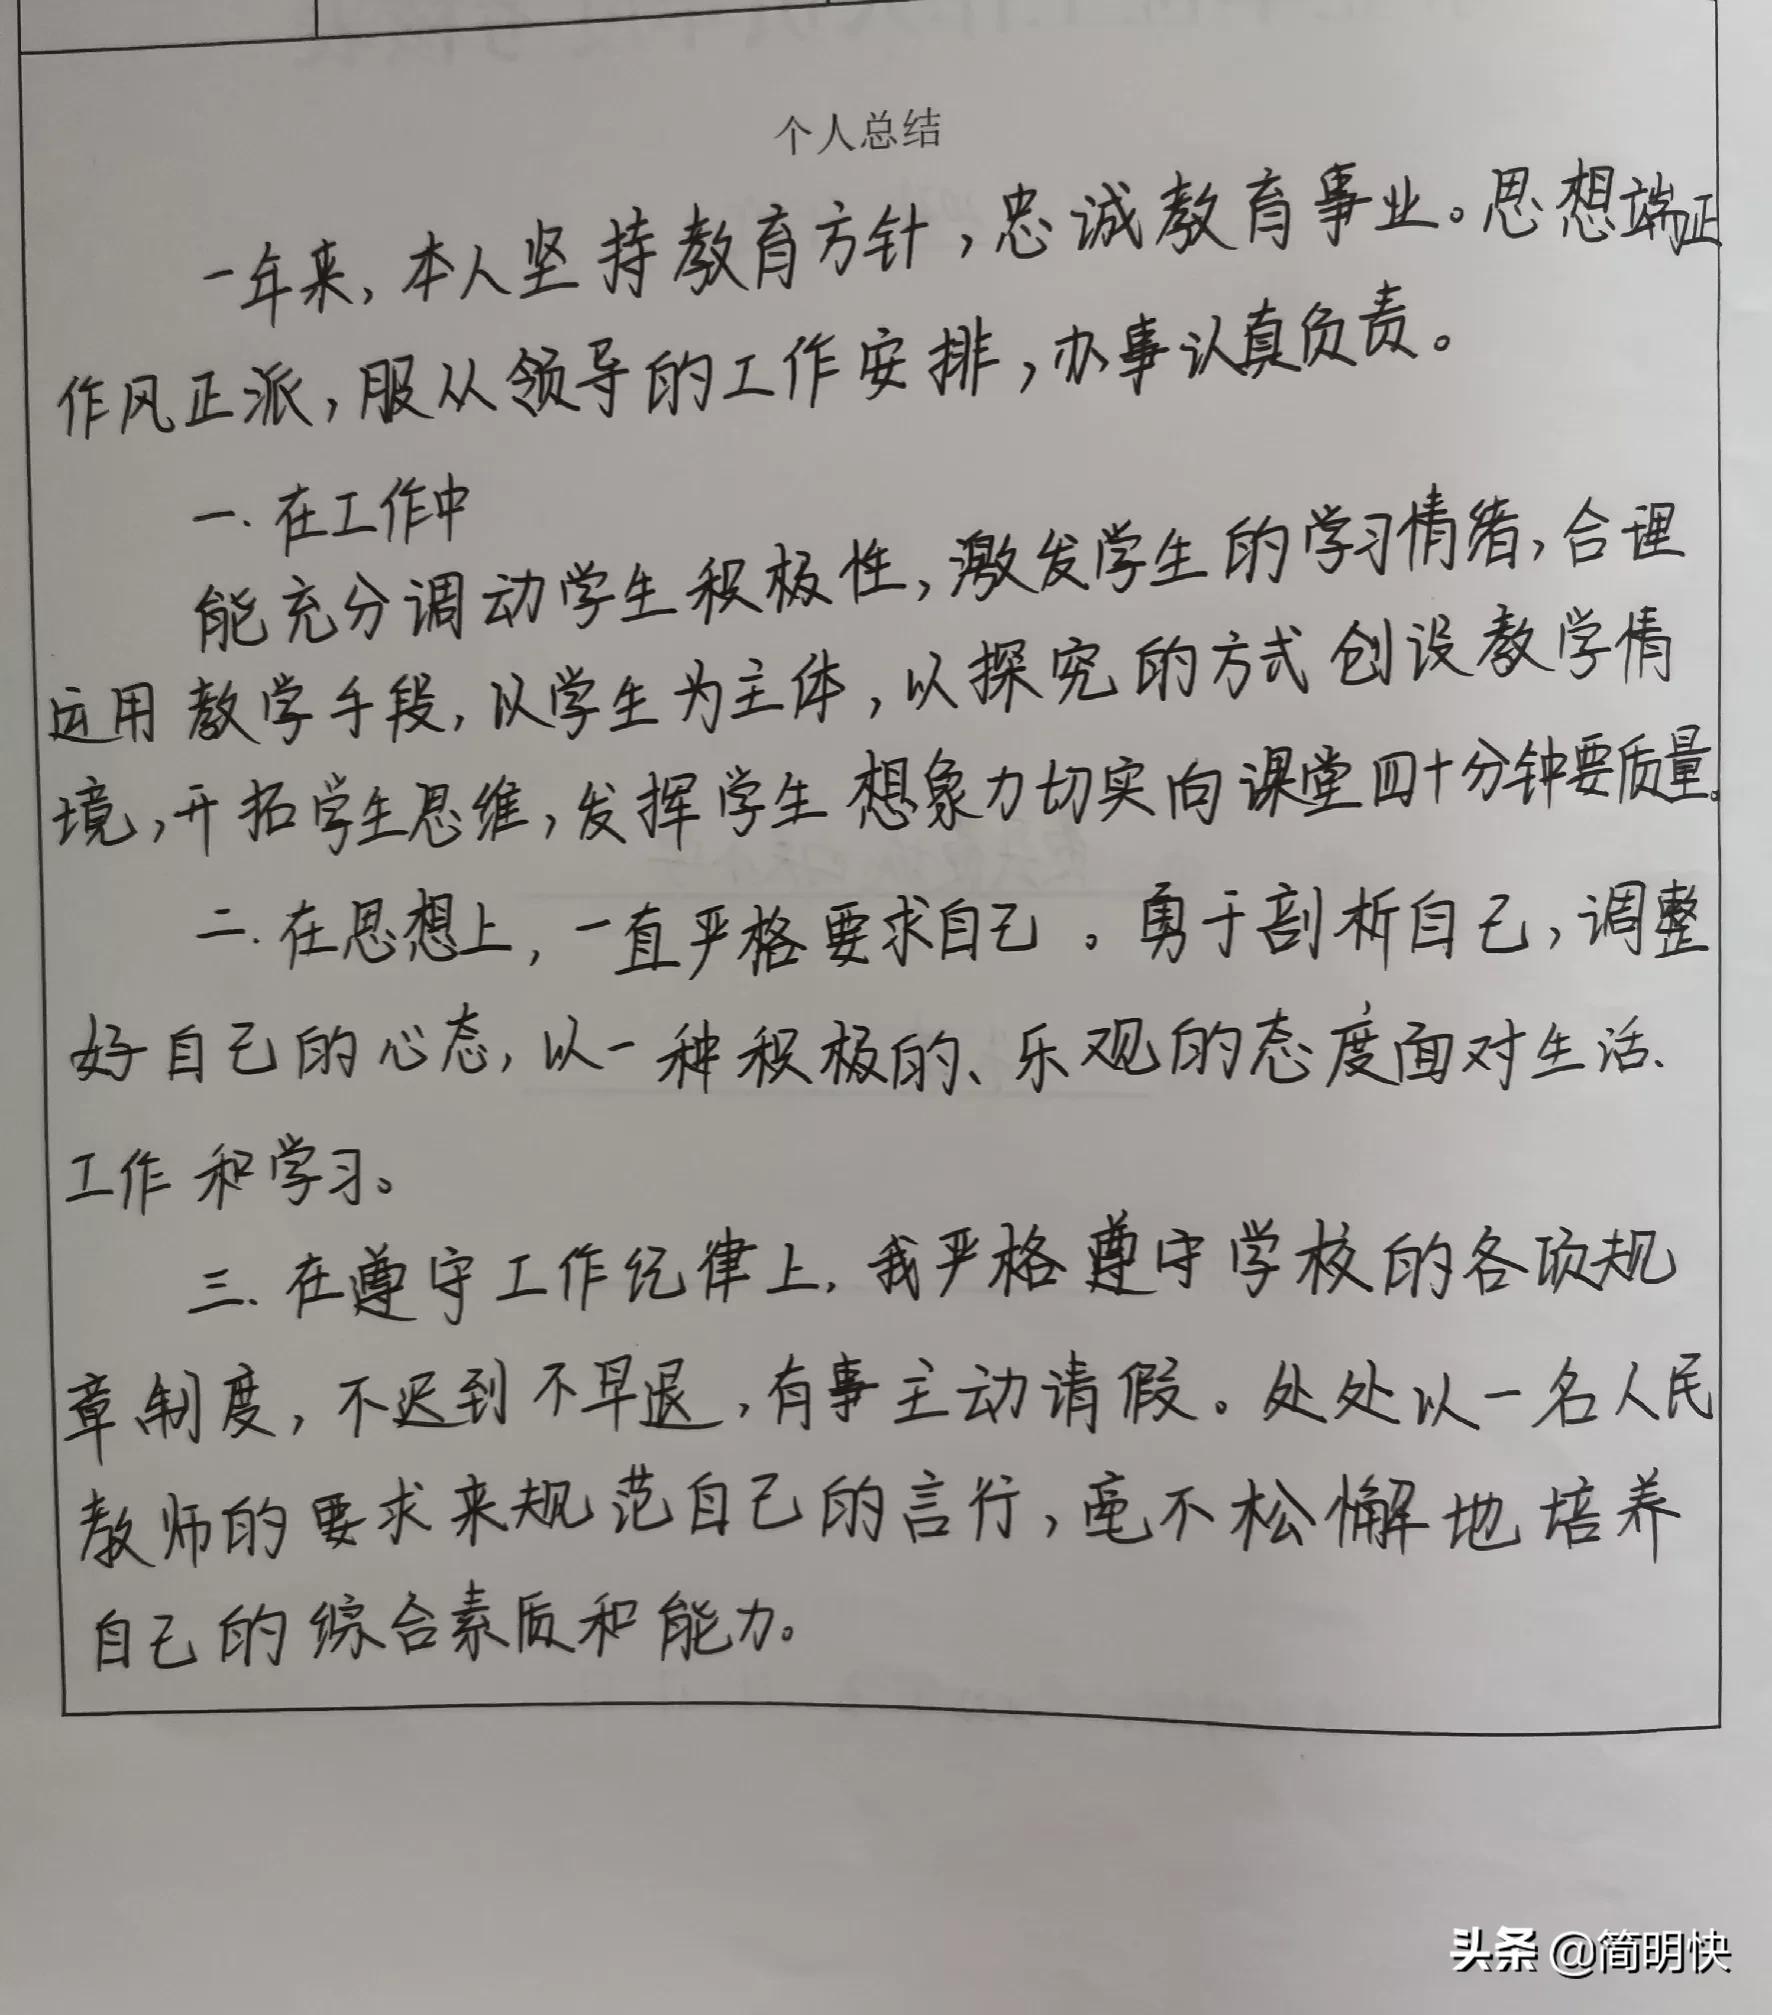 个人总结
一年来,本人坚持教育方针,忠诚教育事业。思想端正
作风正派,服从领导的工作安排,办事认真负责。
一.在工作中
能充分调动学生积极性,激发学生的学习情绪,合理
运用教学手段,以学生为主体,以探究的方式创设教学情
境,开拓学生思维,发挥学生想象力切实向课堂四十分钟要质量。
二.在思想上,一直严格要求自己。勇于剖析自己,调整
好自己的心态,以一种积极的、乐观的态度面对生活、
工作和学习。
三.在遵守工作纪律上,我严格遵守学校的各项规
章制度,不迟到不早退,有事主动请假。处处以一名人民
教师的要求来规范自己的言行,毫不松懈地培养
自己的综合素质和能力。
头条 @简明快